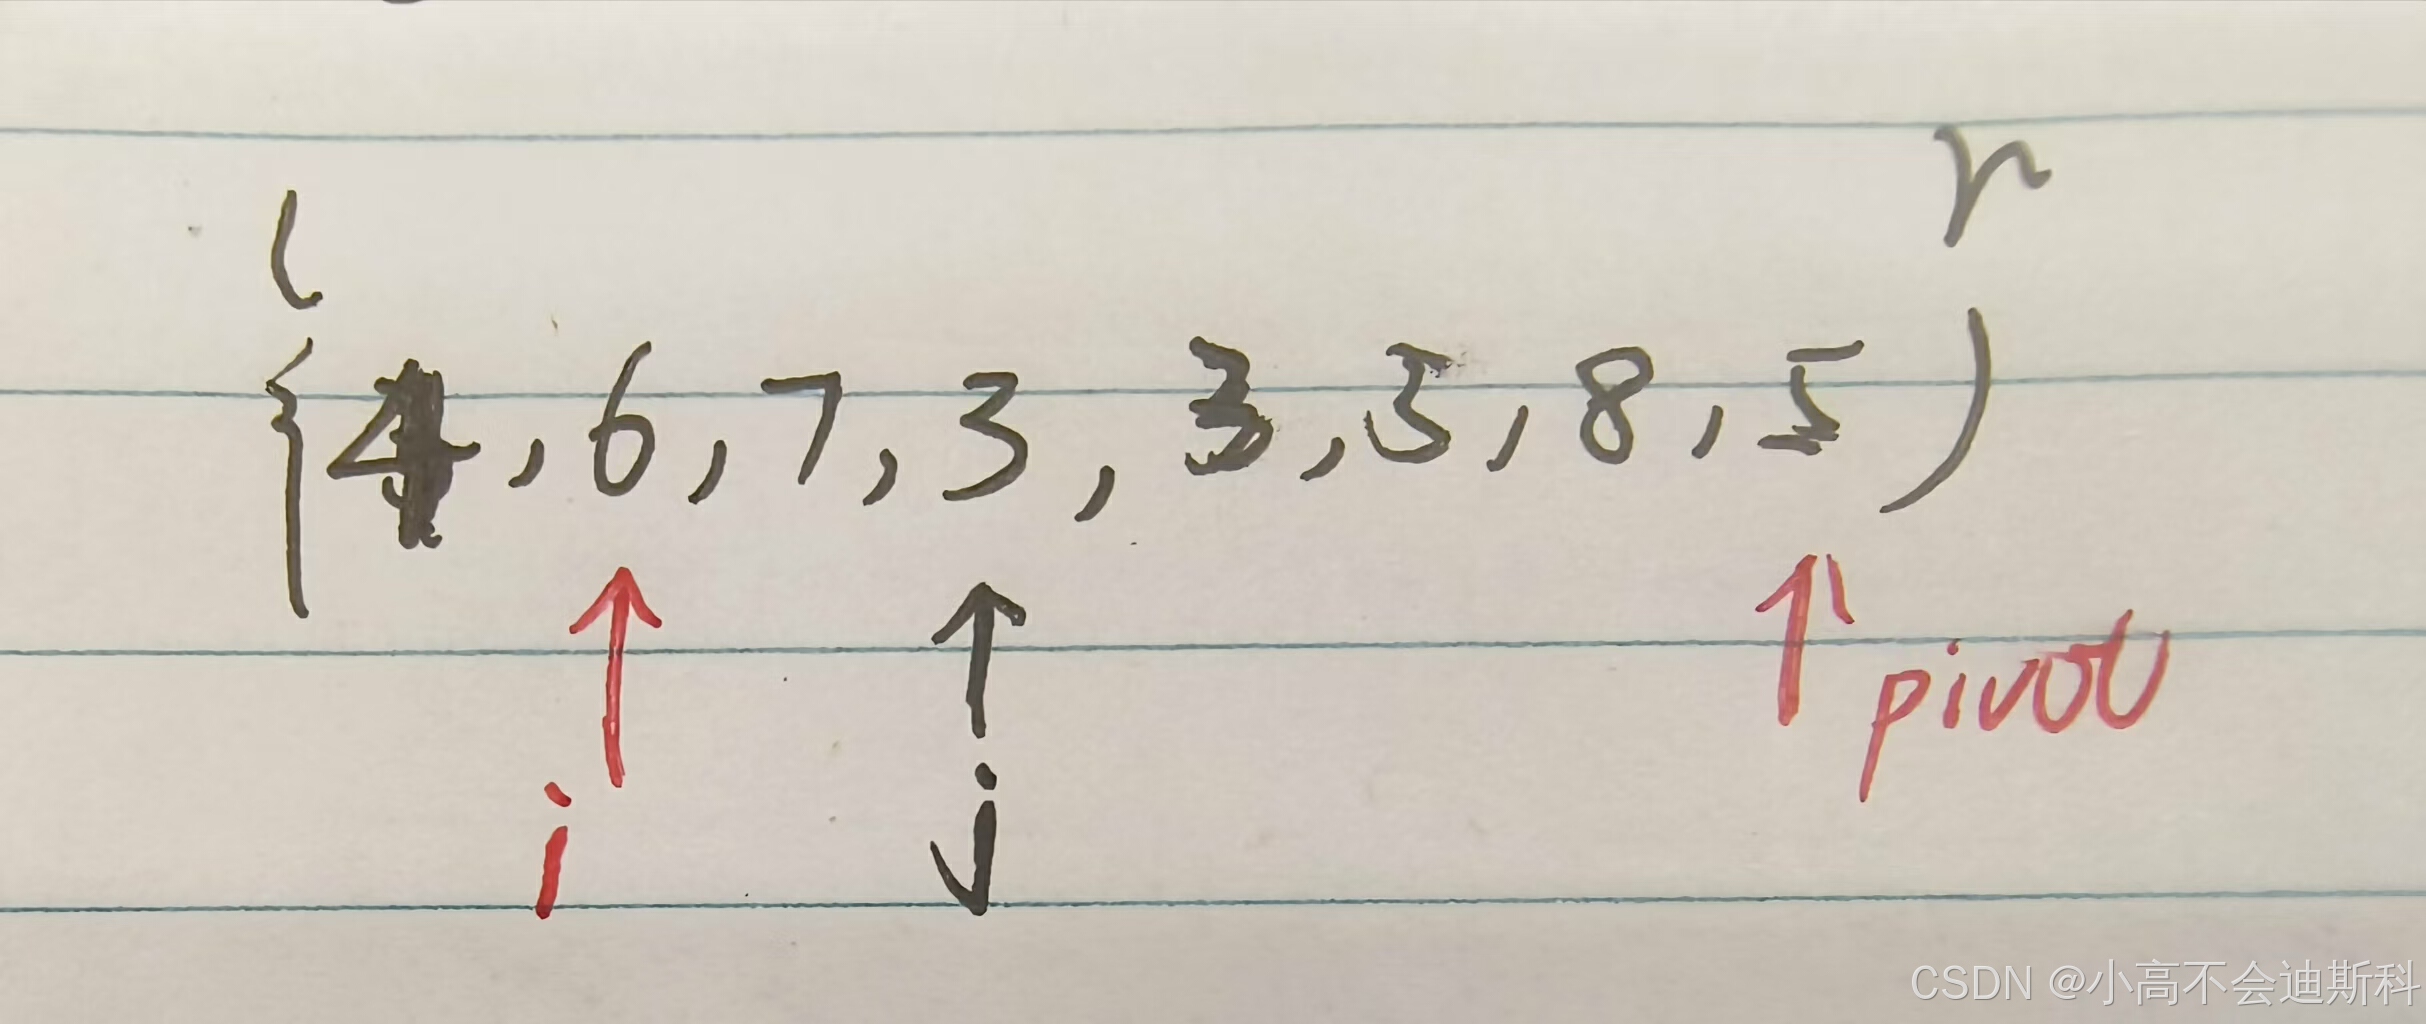 l r
{4, 6, 7, 3, 3, 5, 8, 5)
pivot
i j
CSDN @小高不会迪斯科